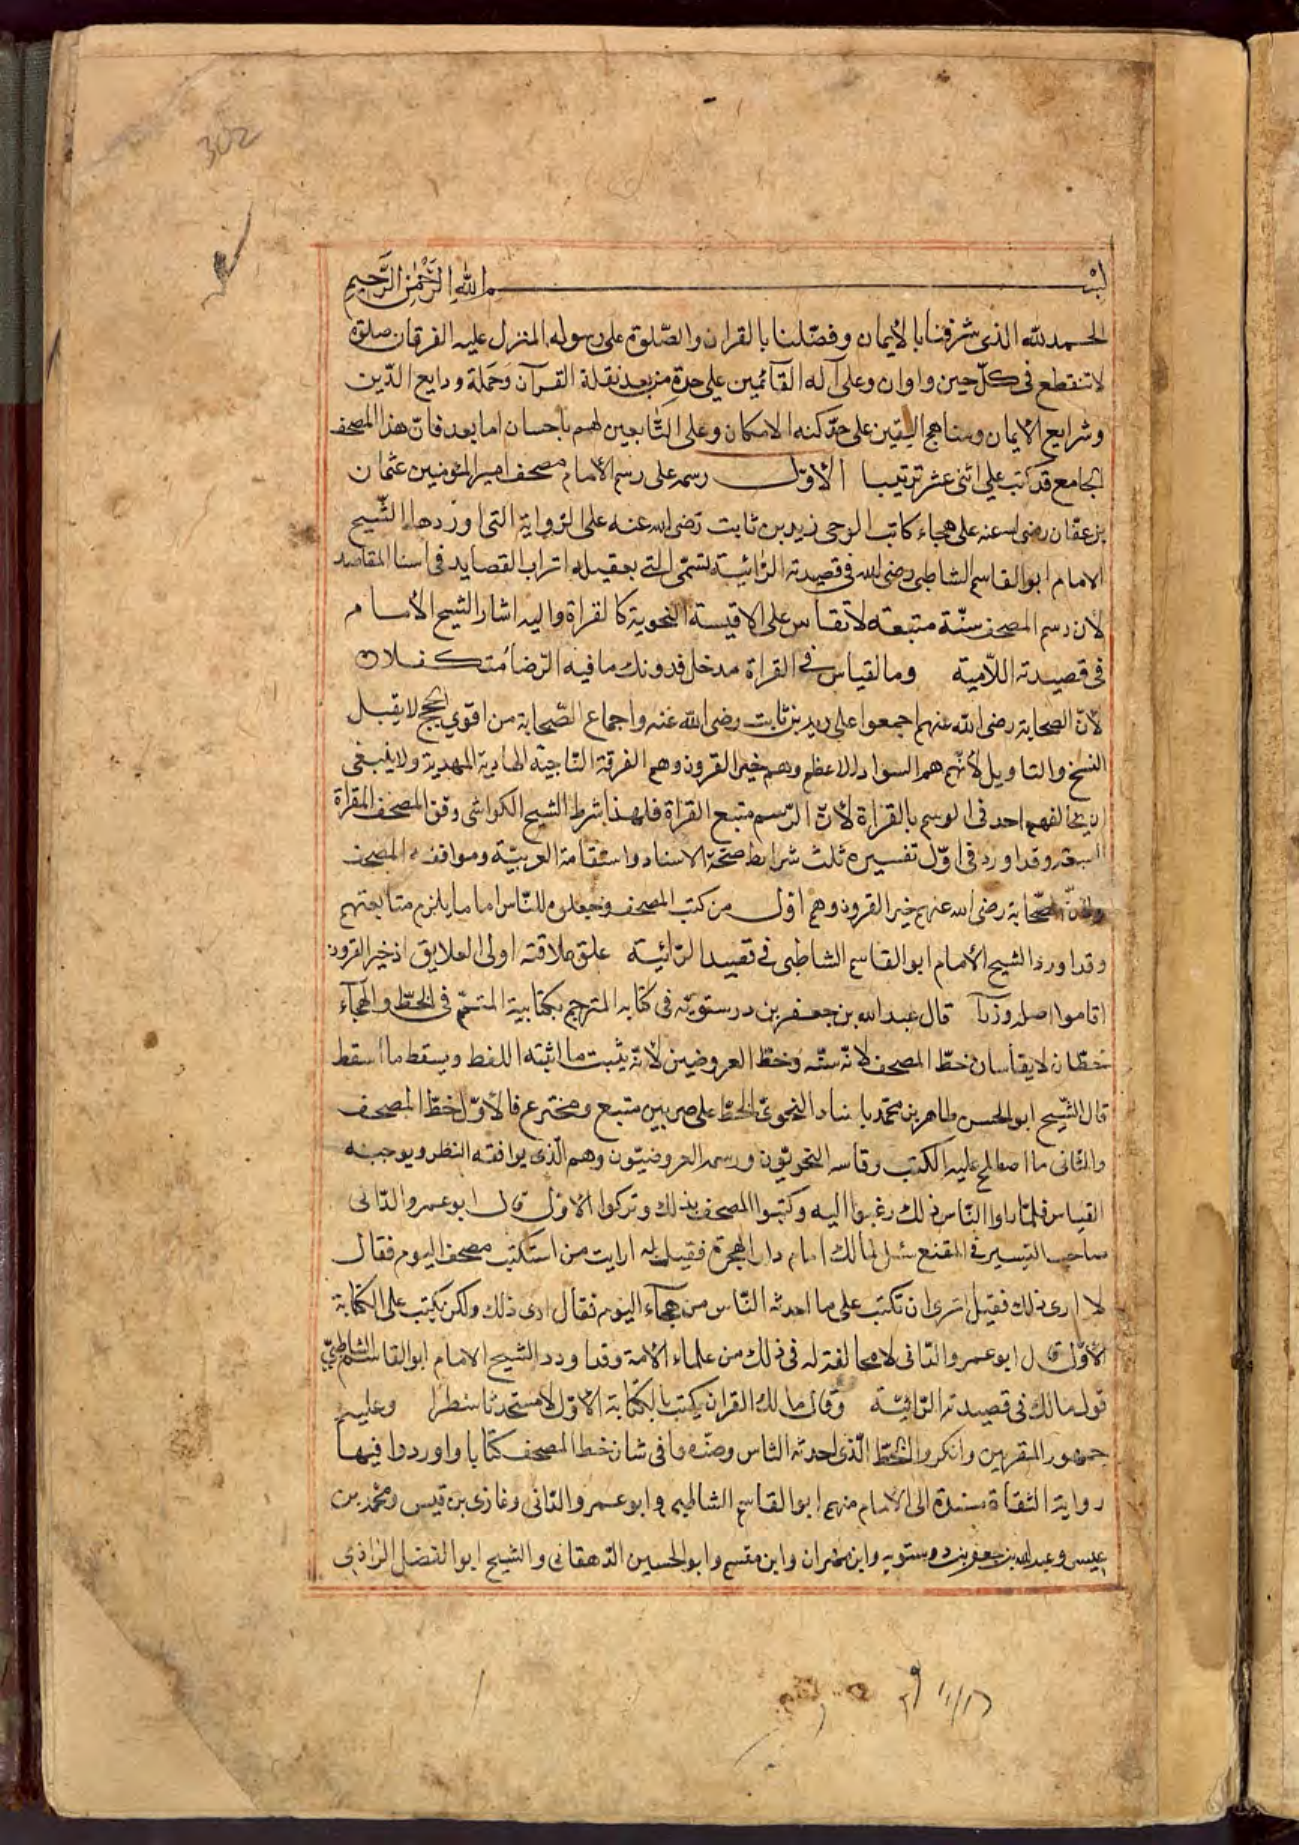 302
بسم الله الرحمن الرحيم
الحمد لله الذي شرفنا بالايمان وفضّلنا بالقران والصّلوة على رسوله المنزل عليه الفرقان صلوة
لا تنقطع في كلّ حين واوان وعلى آله القائمين على حدة من بعد نقلة القرآن وحملة ودايع الدّين
وشرايع الايمان ومناهج اليقين على حدّ كنه الامكان وعلى التّابعين لهم باحسان اما بعد فانّ هذا المصحف
الجامع قد كتب على اثنى عشر ترتيبا الاوّل رسمه على رسم الأمام مصحف امير المؤمنين عثمان
بن عفّان رضى الله عنه على هجاء كاتب الوحى زيد بن ثابت رضى الله عنه على الرواية التى اوردها الشّيخ
الامام ابو القاسم الشاطبى رضى الله فى قصيدته الرّائيّة تسمّى التى بعقيلة اتراب القصايد فى اسنا المقاصد
لأن رسم المصحف سنّة متبعة لا تقاس على الاقيسة النحوية كالقراة واليه اشار الشيخ الأمام
فى قصيدته اللّامية وما لقياس في القراة مدخل فدونك ما فيه الرّضا متكفلا
لأنّ الصحابة رضى الله عنهم اجمعوا على زيد بن ثابت رضى الله عنه واجماع الصّحابة من اقوى الحجج لا يقبل
النسخ والتاويل لأنّهم هم السواد الاعظم وهم خير القرون وهم الفرقة النّاجية الهادية المهدية ولا ينبغى
ان يخالفهم احد فى الوسم بالقراة لأنّ الرّسم متبع القراة فلهذا شرط الشيخ الكواشى وفق المصحف المقراة
السبعة وقد اورد فى اوّل تفسيره ثلث شرايط صحّة الاسناد واستقامة العربيّة وموافقة المصحف
ولأنّ الصّحابة رضى الله عنهم خير القرون وهم اوّل من كتب المصحف وجعلوه للنّاس اماما يلزم متابعتهم
وقد اورد الشيخ الأمام ابو القاسم الشاطبى فى قصيدة الرّائيّة علق علاقته اولى العلايق اذ خير القرون
اقاموا اصله وزرا قال عبد الله بن جعفر بن درستويه فى كتابه المترجم بكتابية المتمّم فى الخطّ والهجآء
خطّان لا يقاسان خطّ المصحف لانّه سنّة وخطّ العروضيين لأنّه يثبت ما اثبته اللفظ ويسقط ما اسقط
قال الشّيخ ابو الحسن طاهر بن محمّد بابشاد النحوىّ الخطّ على ضربين متبع ومخترع فالأوّل خطّ المصحف
والثانى ما اصطلح عليه الكتب وقاسه النحويّون ورسمه العروضيّون وهم الّذى يوافقه النظر ويوجبه
القياس فلمّا راوا النّاس ذلك رغبوا اليه وكتبوا المصحف بذلك وتركوا الاوّل قال ابو عمرو الدّانى
صاحب التيسير فى المقنع سئل لمالك امام دار الهجرة فقيل له ارايت من استكتب مصحف اليوم فقال
لا ارى ذلك فقيل اترى ان تكتب على ما احدثه النّاس من هجآء اليوم فقال ارى ذلك ولكن يكتب على الكتابة
الأوّل قال ابو عمرو الدّانى لا مخالفة له فى ذلك من علماء الأمة وقد اورد الشيخ الامام ابو القاسم الشاطبىّ
قوله مالك فى قصيدته الرّائيّة وقال مالك القران يكتب بالكتابة الأوّل لا مستحدثا سطرا وعليه
جمهور المقرئين وانكروا الخطّ الّذى احدثه النّاس وصنّفوا فى شان خط المصحف كتابا واوردوا فيها
رواية الثقاة مسندة الى الامام منهم ابو القاسم الشاطبى وابو عمرو الدّانى وغازى بن قيس ومحمّد بن
عيسى وعبد الله بن جعفر بن درستويه وابن مهران وابن مقسم وابو الحسين الدّهقانى والشيخ ابو الفضل الرازى